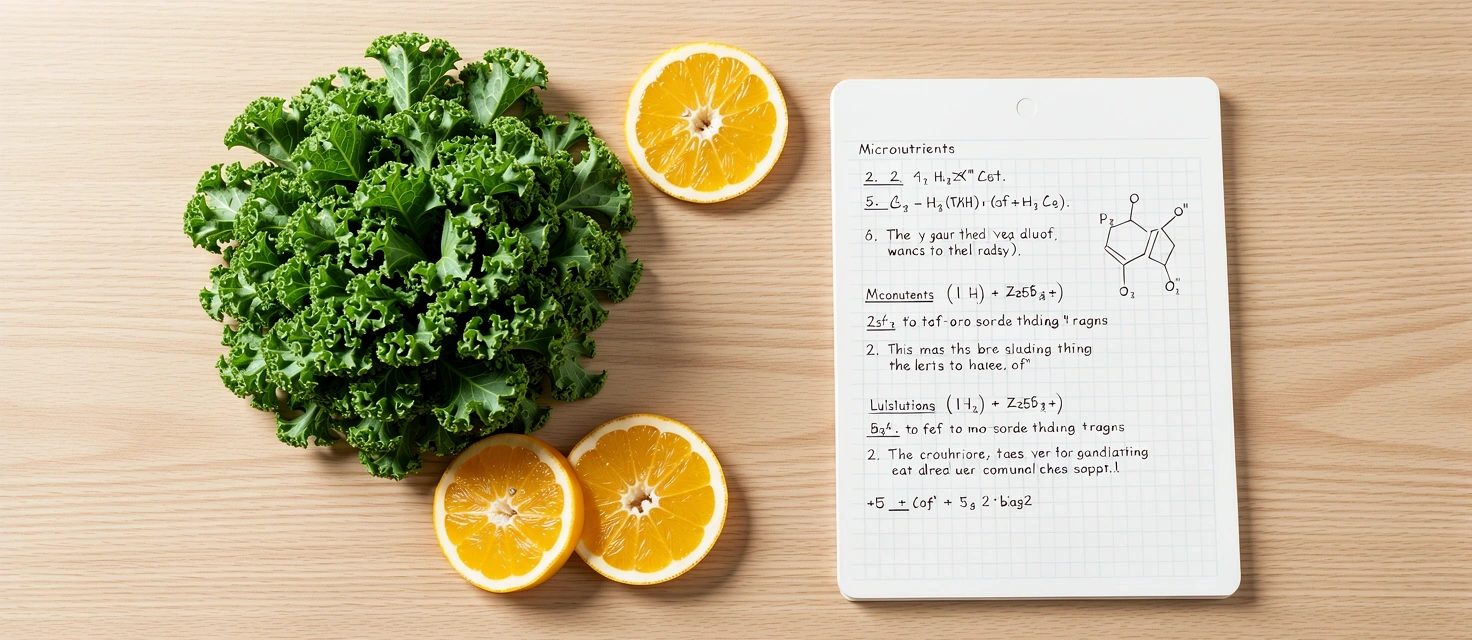 Micronutrients
2. 2. 4₂ H.₂ Cet.
5. G₃ – H₃(TKH), (of + H₃ Ce).
6. The y gaur thed vea dluof,
wancs to thel radsy).
P₂ O O"
O₂ O"₂
Mconutents (1 H) + Zz56 +)
2sf₂ to taf-oro sorde thding 4 ragns
2. This mas ths bre sluding thing
the lerts to halee, of"
Lulslutions (1H₂) + Zz5G₃+)
5₃⁴. to fef to mo sorde thding tragns
2. The crouhriore, taes ver for gandlatting
eat alred uer comunal ches soppt.!
+5 + (of' + 5₉ 2·biag2